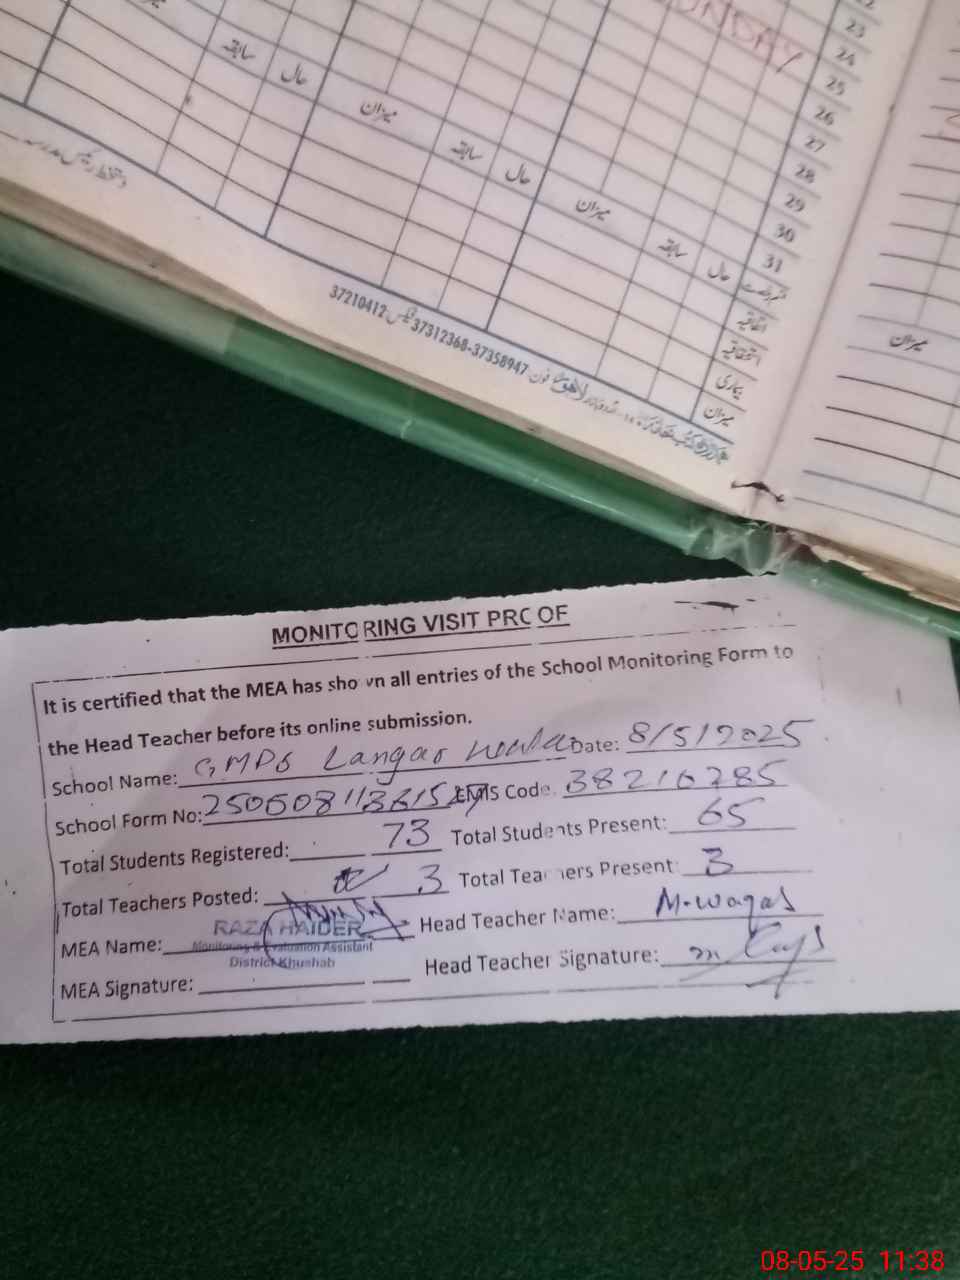 22
23
SUNDAY 24
25
26
27
28
29
30
سابقہ حال میزان سابقہ حال میزان سابقہ حال 31
اتفاقیہ
استحقاقیہ
بیماری
میزان
میزان
37210412 فیکس 37312368-37358947 فون لاہور
MONITORING VISIT PROOF
It is certified that the MEA has shown all entries of the School Monitoring Form to
the Head Teacher before its online submission.
School Name: GMPS Langar Wala Date: 8/5/2025
School Form No: EMIS Code. 38210285
Total Students Registered: 73 Total Students Present: 65
Total Teachers Posted: 3 Total Teachers Present: 3
MEA Name: RAZA HAIDER Head Teacher Name: M.Waqas
Monitoring & Evaluation Assistant
District Khushab
MEA Signature: Head Teacher Signature:
08-05-25 11:38